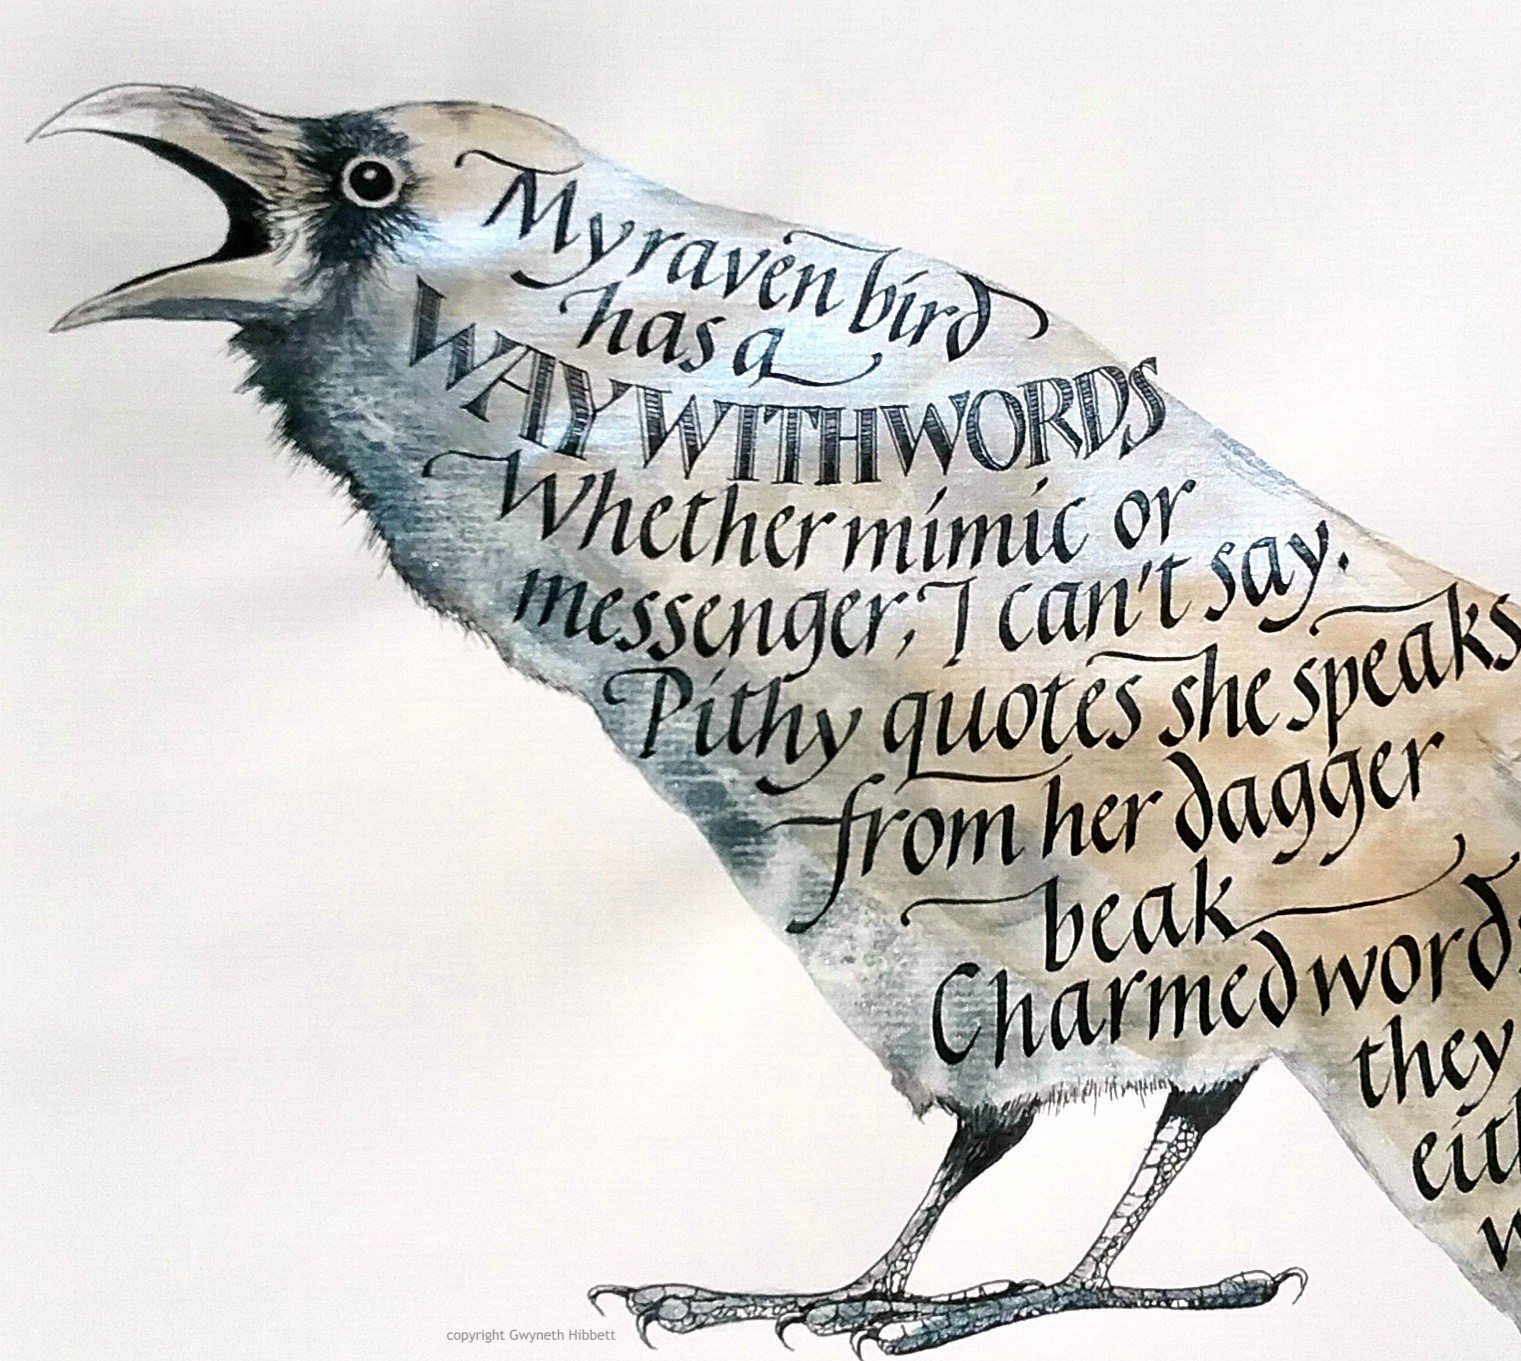 My raven bird
has a
WAY WITH WORDS
Whether mimic or
messenger, I can't say.
Pithy quotes she speaks
from her dagger
beak
Charmed words
they
copyright Gwyneth Hibbett